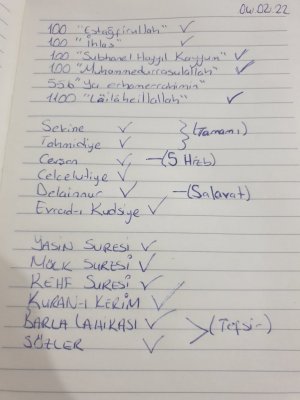 04.02.22
100 "Estağfirullah" ✓
100 "İhlas" ✓
100 "Subhanel Hayyıl Kayyum" ✓
100 "Muhammedurrasulallah" ✓
556 "Ya erhamerrahimin"
1100 "Lailaheillallah" ✓
Sekine ✓
Tahmidiye ✓ (Tamamı)
Cevşen ✓ (5 Hizb)
Celcelutiye ✓
Delainnur ✓ (Salavat)
Evrad-ı Kudsiye ✓
YASİN SURESİ ✓
MÜLK SURESİ ✓
KEHF SURESİ ✓
KURAN-I KERİM ✓
BARLA LAHIKASI ✓
SÖZLER ✓ (Tefsir)